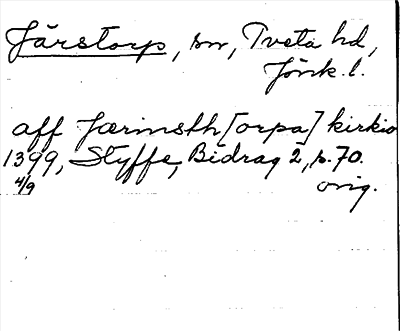 Järstorp, sn, Tveta hd,
Jönk. l.
aff Jærinsth [orpa] kirkio
1399, Styffe, Bidrag 2, s. 70.
4/9 orig.